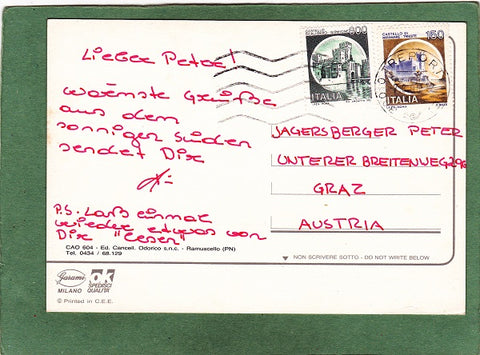 Lieber Peter!
wärmste Grüße
aus dem
sonnigen Süden
sendet Dir
P.S. Laß einmal
wieder etwas von
Dir "lesen"
CAO 604 - Ed. Cancell. Odorico s.n.c. - Ramuscello (PN)
Tel. 0434 / 68.129
Garami
MILANO
OK
SPEDIRCI
QUALITÀ
© Printed in C.E.E.
600
ITALIA
CASTELLO DI
MIRAMARE · TRIESTE
150
ITALIA
JAGERSBERGER PETER
UNTERER BREITENWEG 29a
GRAZ
AUSTRIA
NON SCRIVERE SOTTO - DO NOT WRITE BELOW